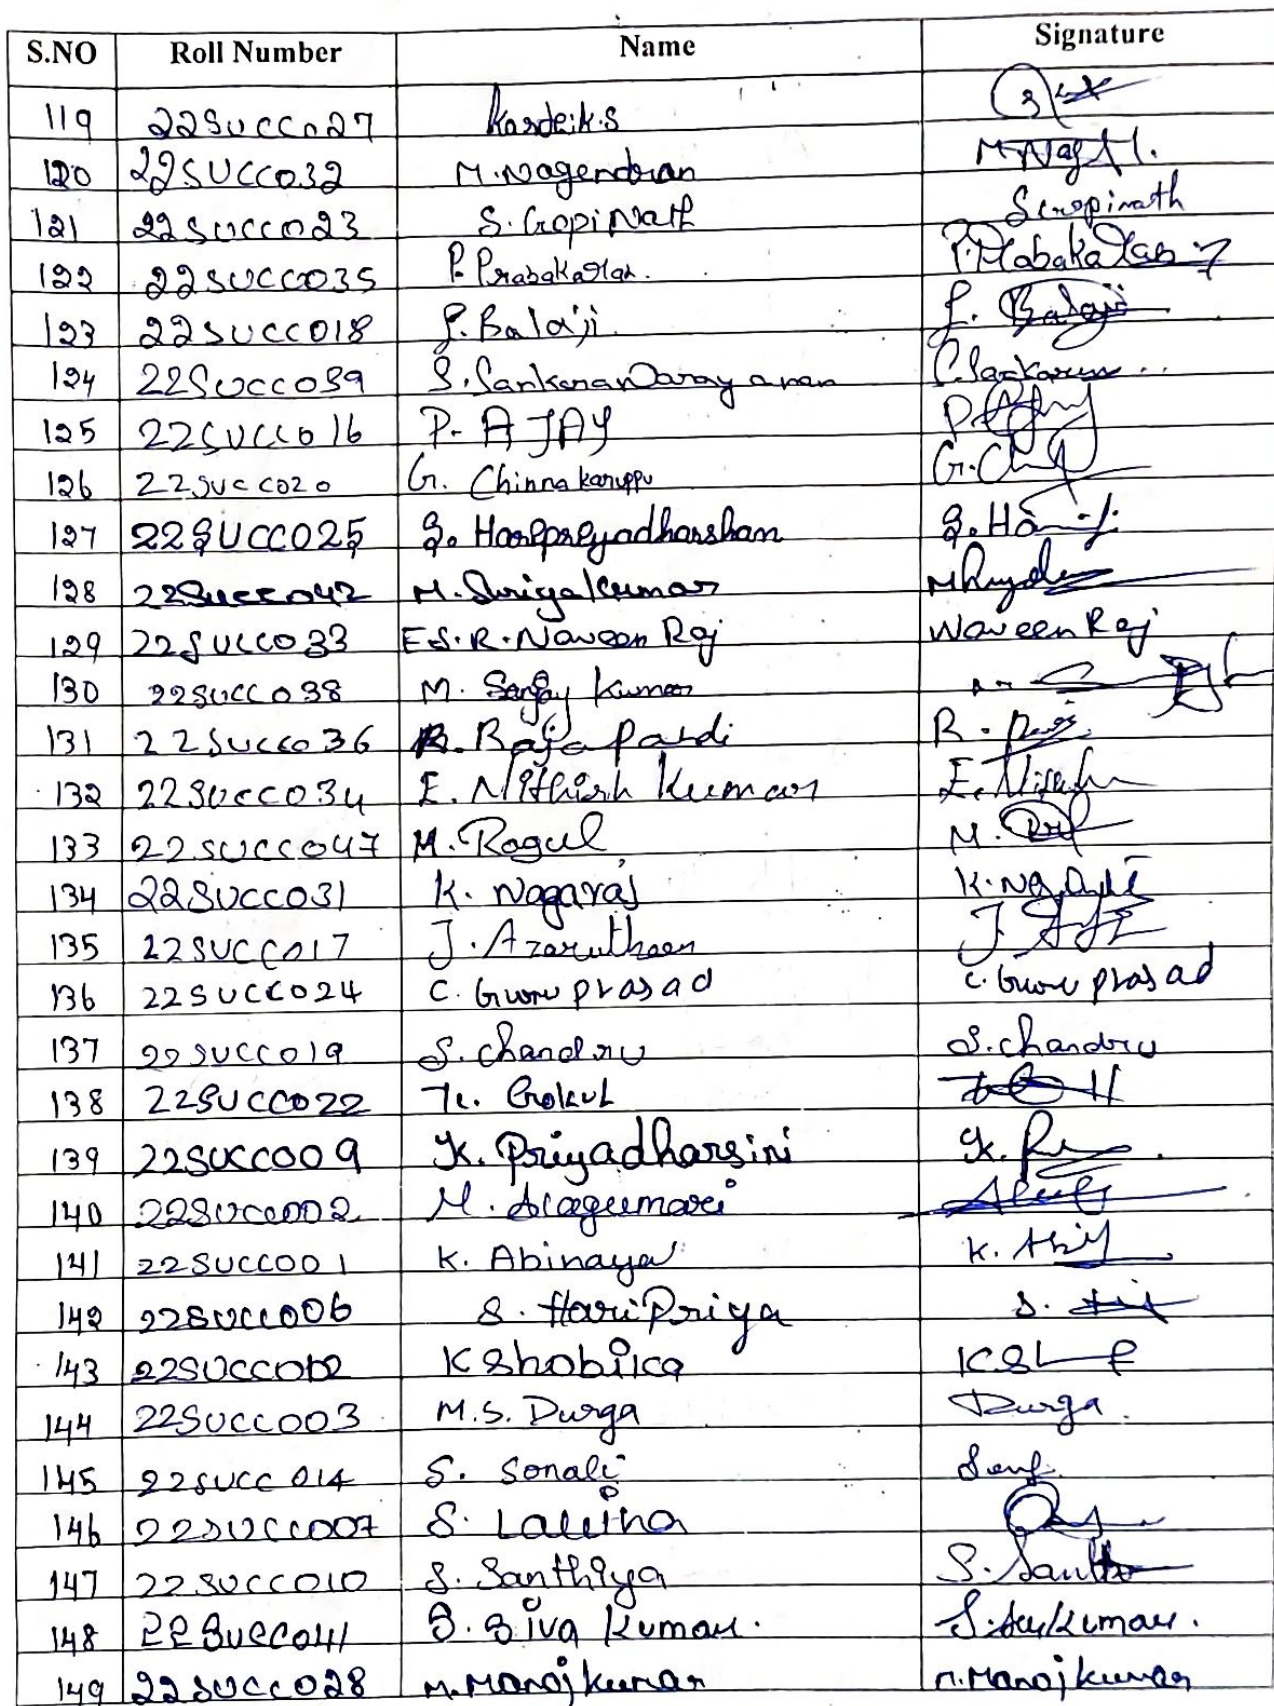 S.NO Roll Number Name Signature
119 22SUCC027 Kardeik.S
120 22SUCC032 M.Nagendran
121 22SUCC023 S. Gopi Nath S.Gopinath
122 22SUCC035 P. Prabakaran. P.Prabakaran
123 22SUCC018 L.Balaji. L. Balaji
124 22SUCC039 S.SankaranNarayanan
125 22SUCC016 P. AJAY P.
126 22SUCC020 G. Chinnakaruppu
127 22SUCC025 S. Haripriyadharshan
128 22SUCC042 M. Suriyakumar
129 22SUCC033 E.S.R.Naveen Raj Naveen Raj
130 22SUCC038 M. Sanjay Kumar
131 22SUCC036 R. Raja Pandi R.
132 22SUCC034 E. Nithish Kumar
133 22SUCC047 M. Ragul M.
134 22SUCC031 K. Nagaraj
135 22SUCC017 J. Azarutheen J.
136 22SUCC024 C. Guru prasad C. Guru prasad
137 22SUCC019 S. chandru S.chandru
138 22SUCC022 K. Gokul
139 22SUCC009 K. Priyadharsini K.
140 22SUCC002 M. Alagumari
141 22SUCC001 K. Abinaya K.
142 22SUCC006 S. HariPriya S.
143 22SUCC012 K Shobika
144 22SUCC003 M.S. Durga Durga.
145 22SUCC014 S. Sonali
146 22SUCC007 S.
147 22SUCC010 S. Santhiya S.
148 22SUCC041 S. Siva Kumar.
149 22SUCC028 M.Manojkumar M.Manojkumar